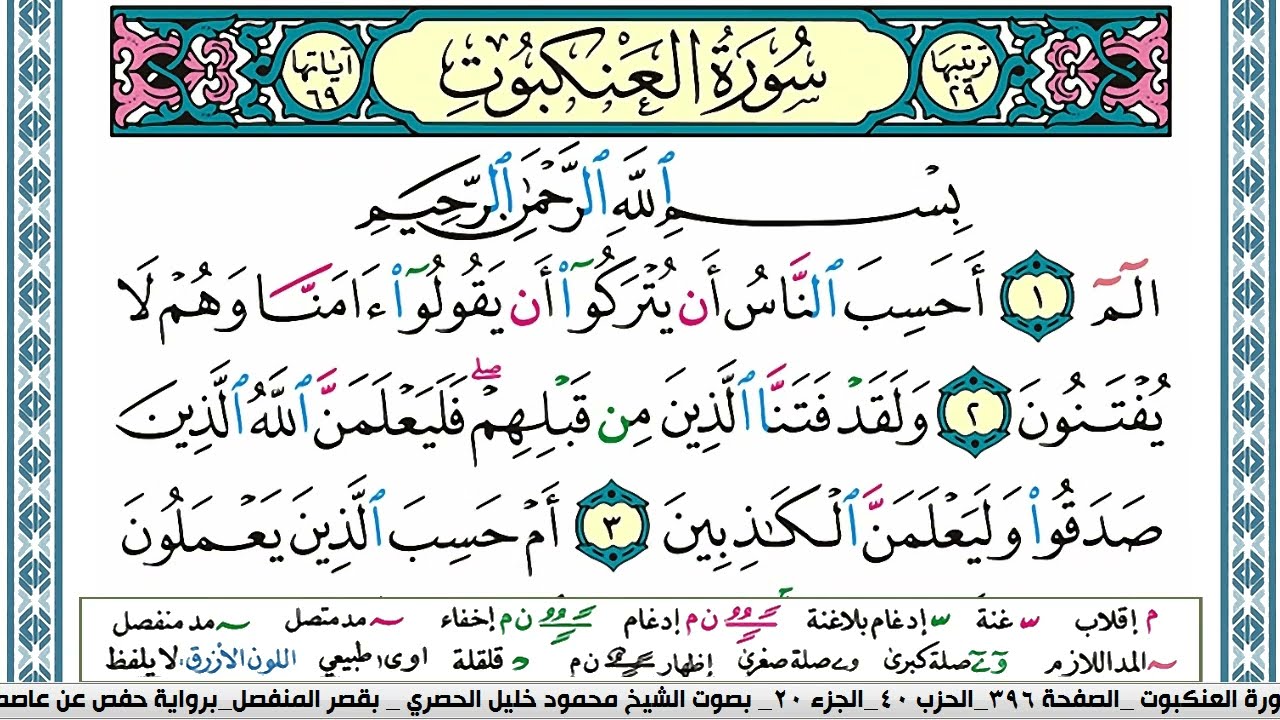 ترتيبها ٢٩ سُورَةُ العَنكَبُوتِ آياتها ٦٩
بِسْمِ ٱللَّهِ ٱلرَّحْمَٰنِ ٱلرَّحِيمِ
الٓمٓ ١ أَحَسِبَ ٱلنَّاسُ أَن يُتْرَكُوٓا۟ أَن يَقُولُوٓا۟ ءَامَنَّا وَهُمْ لَا
يُفْتَنُونَ ٢ وَلَقَدْ فَتَنَّا ٱلَّذِينَ مِن قَبْلِهِمْ ۖ فَلَيَعْلَمَنَّ ٱللَّهُ ٱلَّذِينَ
صَدَقُوا۟ وَلَيَعْلَمَنَّ ٱلْكَٰذِبِينَ ٣ أَمْ حَسِبَ ٱلَّذِينَ يَعْمَلُونَ
م إقلاب س غنة س إدغام بلاغنة ن م إدغام ن م إخفاء مد متصل مد منفصل
المد اللازم صلة كبرى وے صلة صغرى إظهار ن م د قلقلة اوى طبيعي اللون الأزرق: لا يلفظ
ورة العنكبوت _الصفحة ٣٩٦_الحزب ٤٠_الجزء ٢٠_ بصوت الشيخ محمود خليل الحصري _ بقصر المنفصل_برواية حفص عن عاصم